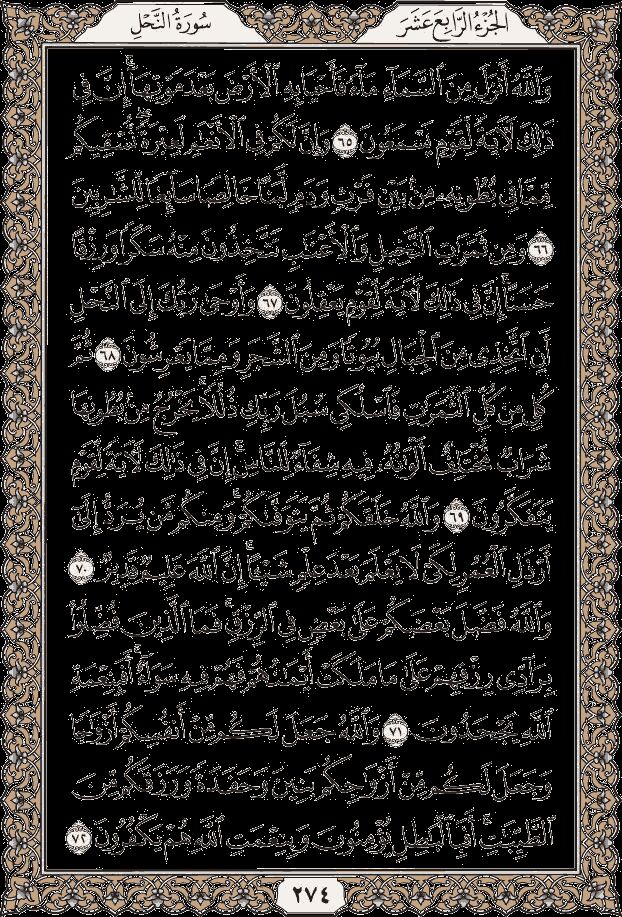 الجُزْءُ الرَّابِعَ عَشَرَ
سُورَةُ النَّحْلِ
وَٱللَّهُ أَنزَلَ مِنَ ٱلسَّمَآءِ مَآءً فَأَحْيَا بِهِ ٱلْأَرْضَ بَعْدَ مَوْتِهَآ إِنَّ فِى
ذَٰلِكَ لَءَايَةً لِّقَوْمٍ يَسْمَعُونَ ٦٥ وَإِنَّ لَكُمْ فِى ٱلْأَنْعَٰمِ لَعِبْرَةً نُّسْقِيكُم
مِّمَّا فِى بُطُونِهِۦ مِنۢ بَيْنِ فَرْثٍ وَدَمٍ لَّبَنًا خَالِصًا سَآئِغًا لِّلشَّٰرِبِينَ
٦٦ وَمِن ثَمَرَٰتِ ٱلنَّخِيلِ وَٱلْأَعْنَٰبِ تَتَّخِذُونَ مِنْهُ سَكَرًا وَرِزْقًا
حَسَنًا إِنَّ فِى ذَٰلِكَ لَءَايَةً لِّقَوْمٍ يَعْقِلُونَ ٦٧ وَأَوْحَىٰ رَبُّكَ إِلَى ٱلنَّحْلِ
أَنِ ٱتَّخِذِى مِنَ ٱلْجِبَالِ بُيُوتًا وَمِنَ ٱلشَّجَرِ وَمِمَّا يَعْرِشُونَ ٦٨ ثُمَّ
كُلِى مِن كُلِّ ٱلثَّمَرَٰتِ فَٱسْلُكِى سُبُلَ رَبِّكِ ذُلُلًا يَخْرُجُ مِنۢ بُطُونِهَا
شَرَابٌ مُّخْتَلِفٌ أَلْوَٰنُهُۥ فِيهِ شِفَآءٌ لِّلنَّاسِ إِنَّ فِى ذَٰلِكَ لَءَايَةً لِّقَوْمٍ
يَتَفَكَّرُونَ ٦٩ وَٱللَّهُ خَلَقَكُمْ ثُمَّ يَتَوَفَّىٰكُمْ وَمِنكُم مَّن يُرَدُّ إِلَىٰٓ
أَرْذَلِ ٱلْعُمُرِ لِكَىْ لَا يَعْلَمَ بَعْدَ عِلْمٍ شَيْـًٔا إِنَّ ٱللَّهَ عَلِيمٌ قَدِيرٌ ٧٠
وَٱللَّهُ فَضَّلَ بَعْضَكُمْ عَلَىٰ بَعْضٍ فِى ٱلرِّزْقِ فَمَا ٱلَّذِينَ فُضِّلُوا۟
بِرَآدِّى رِزْقِهِمْ عَلَىٰ مَا مَلَكَتْ أَيْمَٰنُهُمْ فَهُمْ فِيهِ سَوَآءٌ أَفَبِنِعْمَةِ
ٱللَّهِ يَجْحَدُونَ ٧١ وَٱللَّهُ جَعَلَ لَكُم مِّنْ أَنفُسِكُمْ أَزْوَٰجًا
وَجَعَلَ لَكُم مِّنْ أَزْوَٰجِكُم بَنِينَ وَحَفَدَةً وَرَزَقَكُم مِّنَ
ٱلطَّيِّبَٰتِ أَفَبِٱلْبَٰطِلِ يُؤْمِنُونَ وَبِنِعْمَتِ ٱللَّهِ هُمْ يَكْفُرُونَ ٧٢
٢٧٤